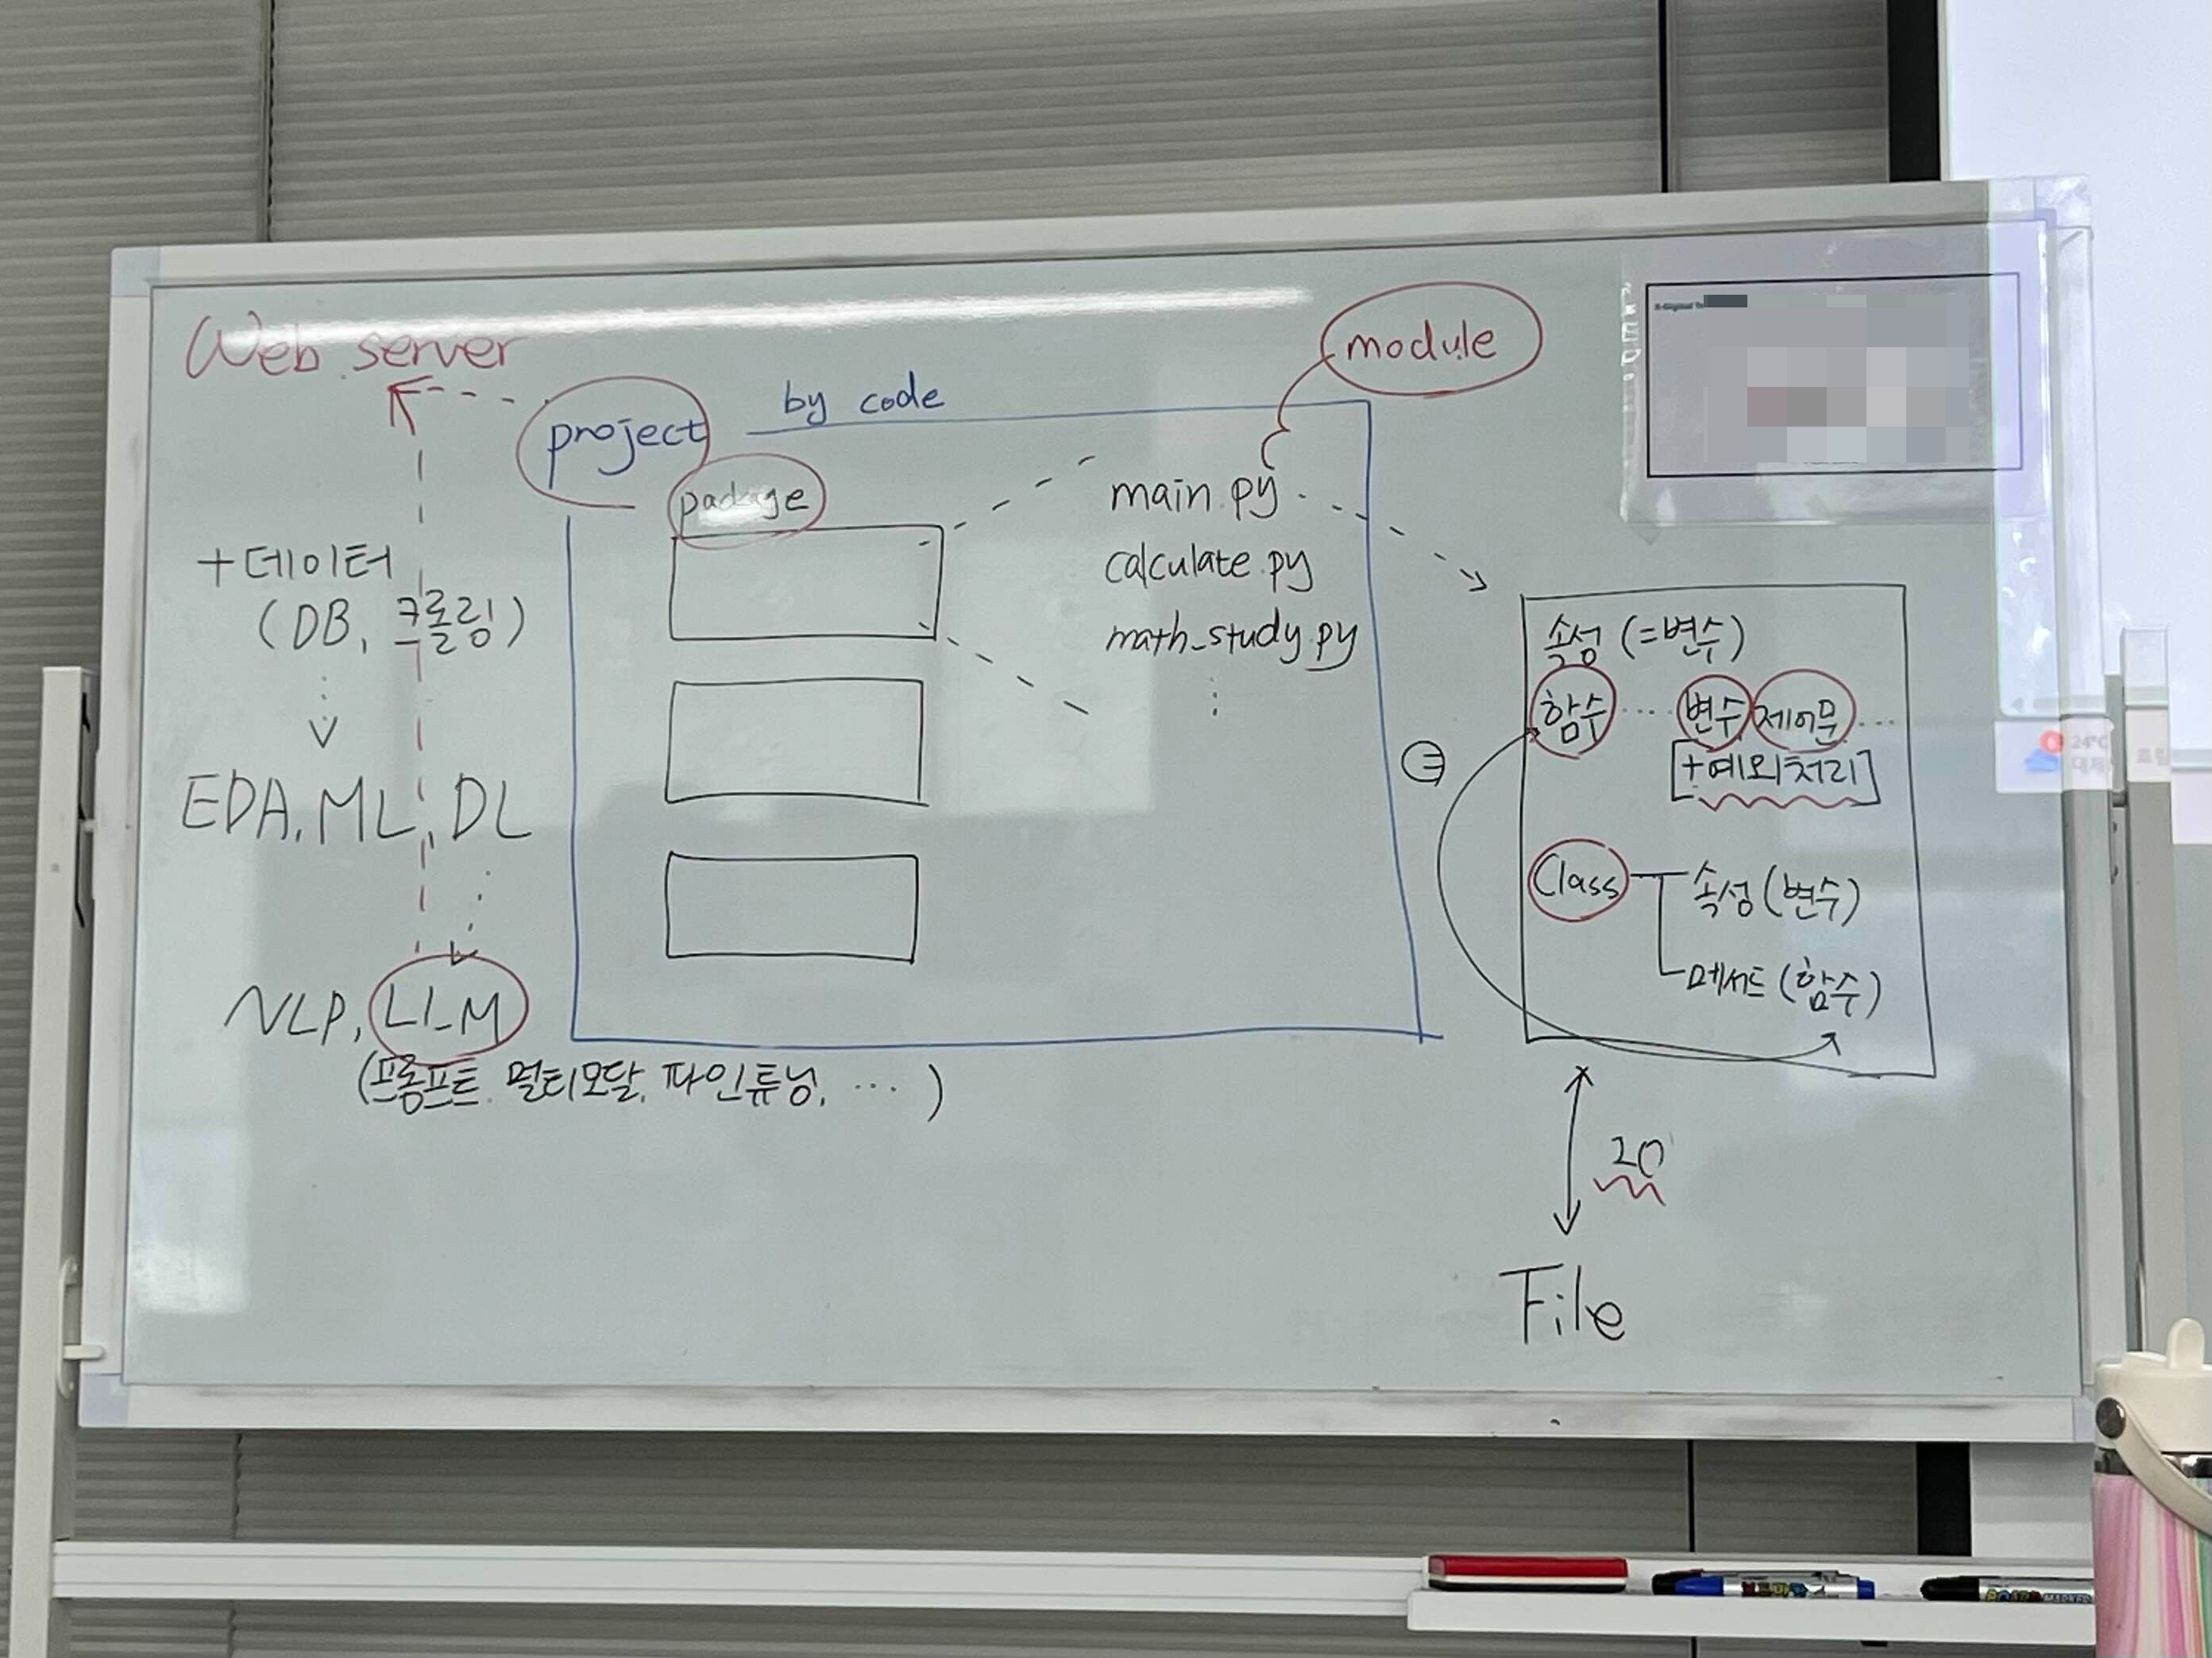 Web server
project
by code
package
module
main.py
calculate.py
math_study.py
+데이터
(DB, 크롤링)
EDA, ML, DL
NLP, LLM
(프롬프트, 멀티모달, 파인튜닝, ...)
속성 (=변수)
함수 ... 변수 제어문 ...
[+예외처리]
Class 속성 (변수)
메서드 (함수)
File
24°C